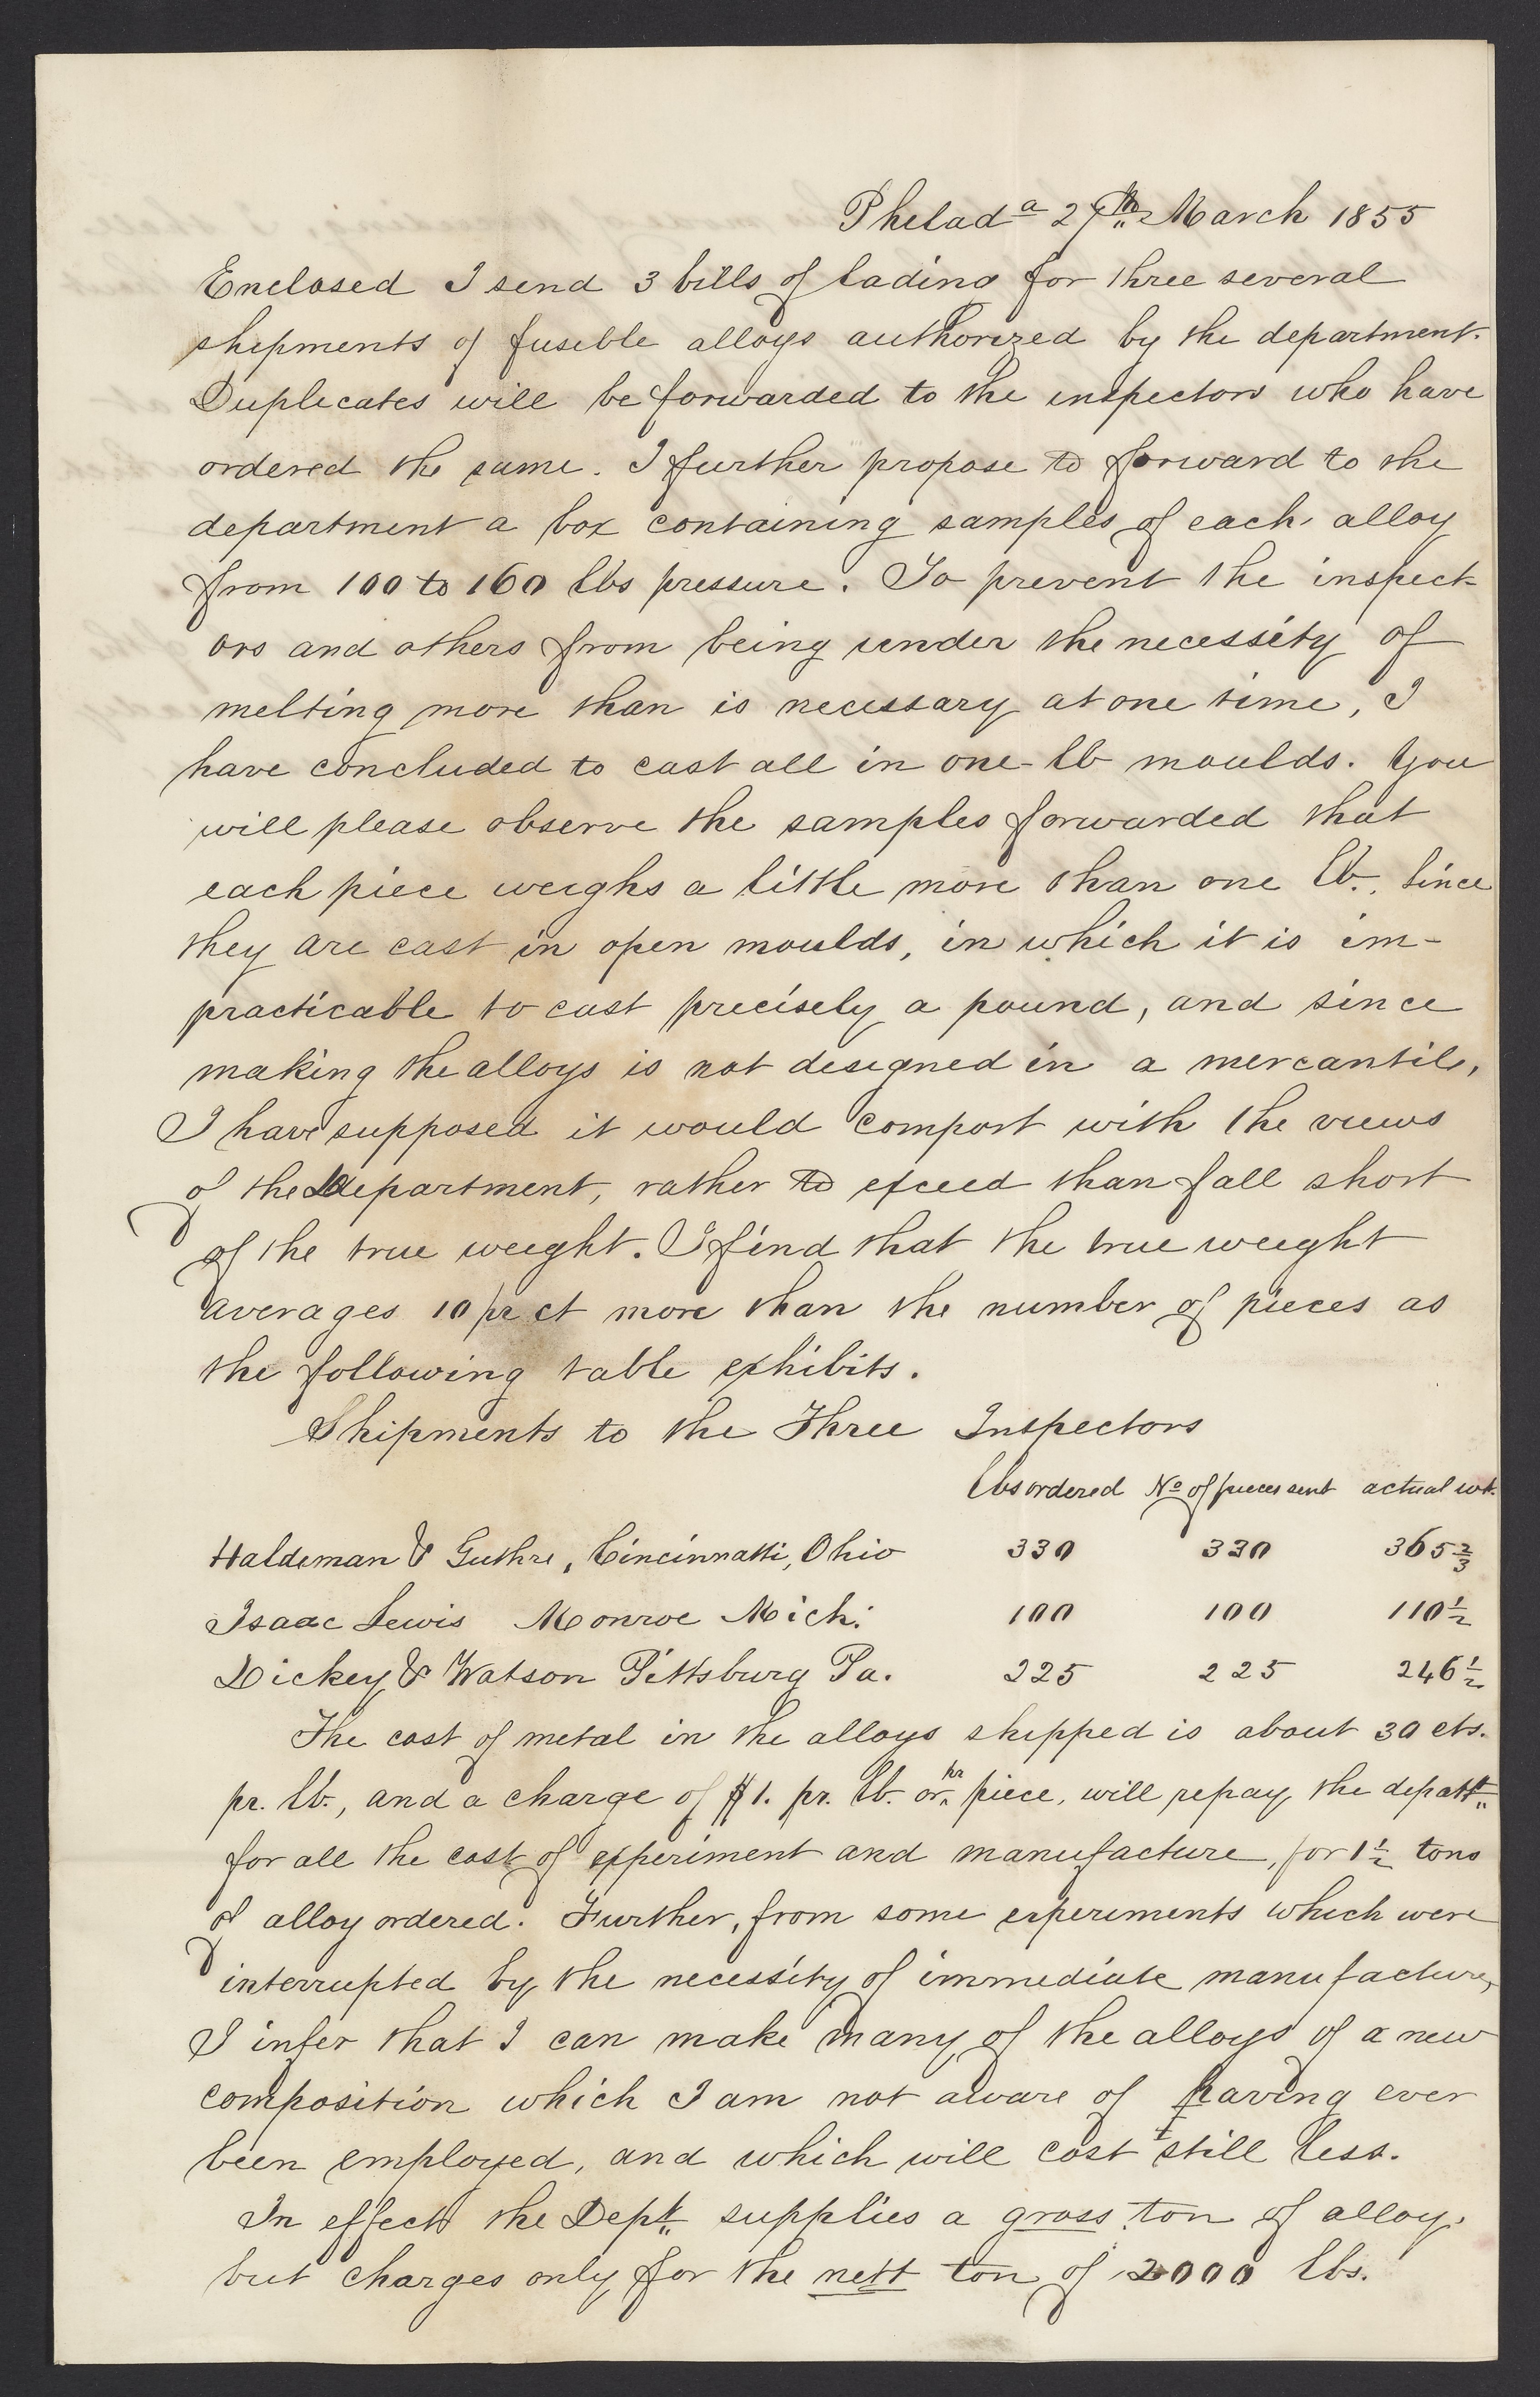 Philad a 27th March 1855
Enclosed I send 3 bills of lading for three several
shipments of fusible alloys authorized by the department.
Duplicates will be forwarded to the inspectors who have
ordered the same. I further propose to forward to the
department a box containing samples of each alloy
from 100 to 160 lbs pressure. To prevent the inspect-
ors and others from being under the necessity of
melting more than is necessary at one time, I
have concluded to cast all in one lb moulds. You
will please observe the samples forwarded that
each piece weighs a little more than one lb. Since
they are cast in open moulds, in which it is im-
practicable to cast precisely a pound, and since
making the alloys is not designed in a mercantile,
I have supposed it would comport with the views
of the Department, rather to exceed than fall short
of the true weight. I find that the true weight
averages 10 pr ct more than the number of pieces as
the following table exhibits.
Shipments to the Three Inspectors
lbs ordered No of pieces sent actual wt.
Haldeman & Guthre, Cincinnatti, Ohio 330 330 365 2/3
Isaac Lewis Monroe Mich. 100 100 110 1/2
Dickey & Watson Pittsburg Pa. 225 225 246 1/2
The cost of metal in the alloys shipped is about 30 cts.
pr. lb., and a charge of $1. pr. lb. or pr piece, will repay the depatt
for all the cost of experiment and manufacture, for 1 1/2 tons
of alloy ordered. Further, from some experiments which were
interrupted by the necessity of immediate manufacture,
I infer that I can make many of the alloys of a new
composition which I am not aware of having ever
been employed, and which will cost still less.
In effect the Dept. supplies a gross ton of alloy,
but charges only for the nett ton of 2000 lbs.